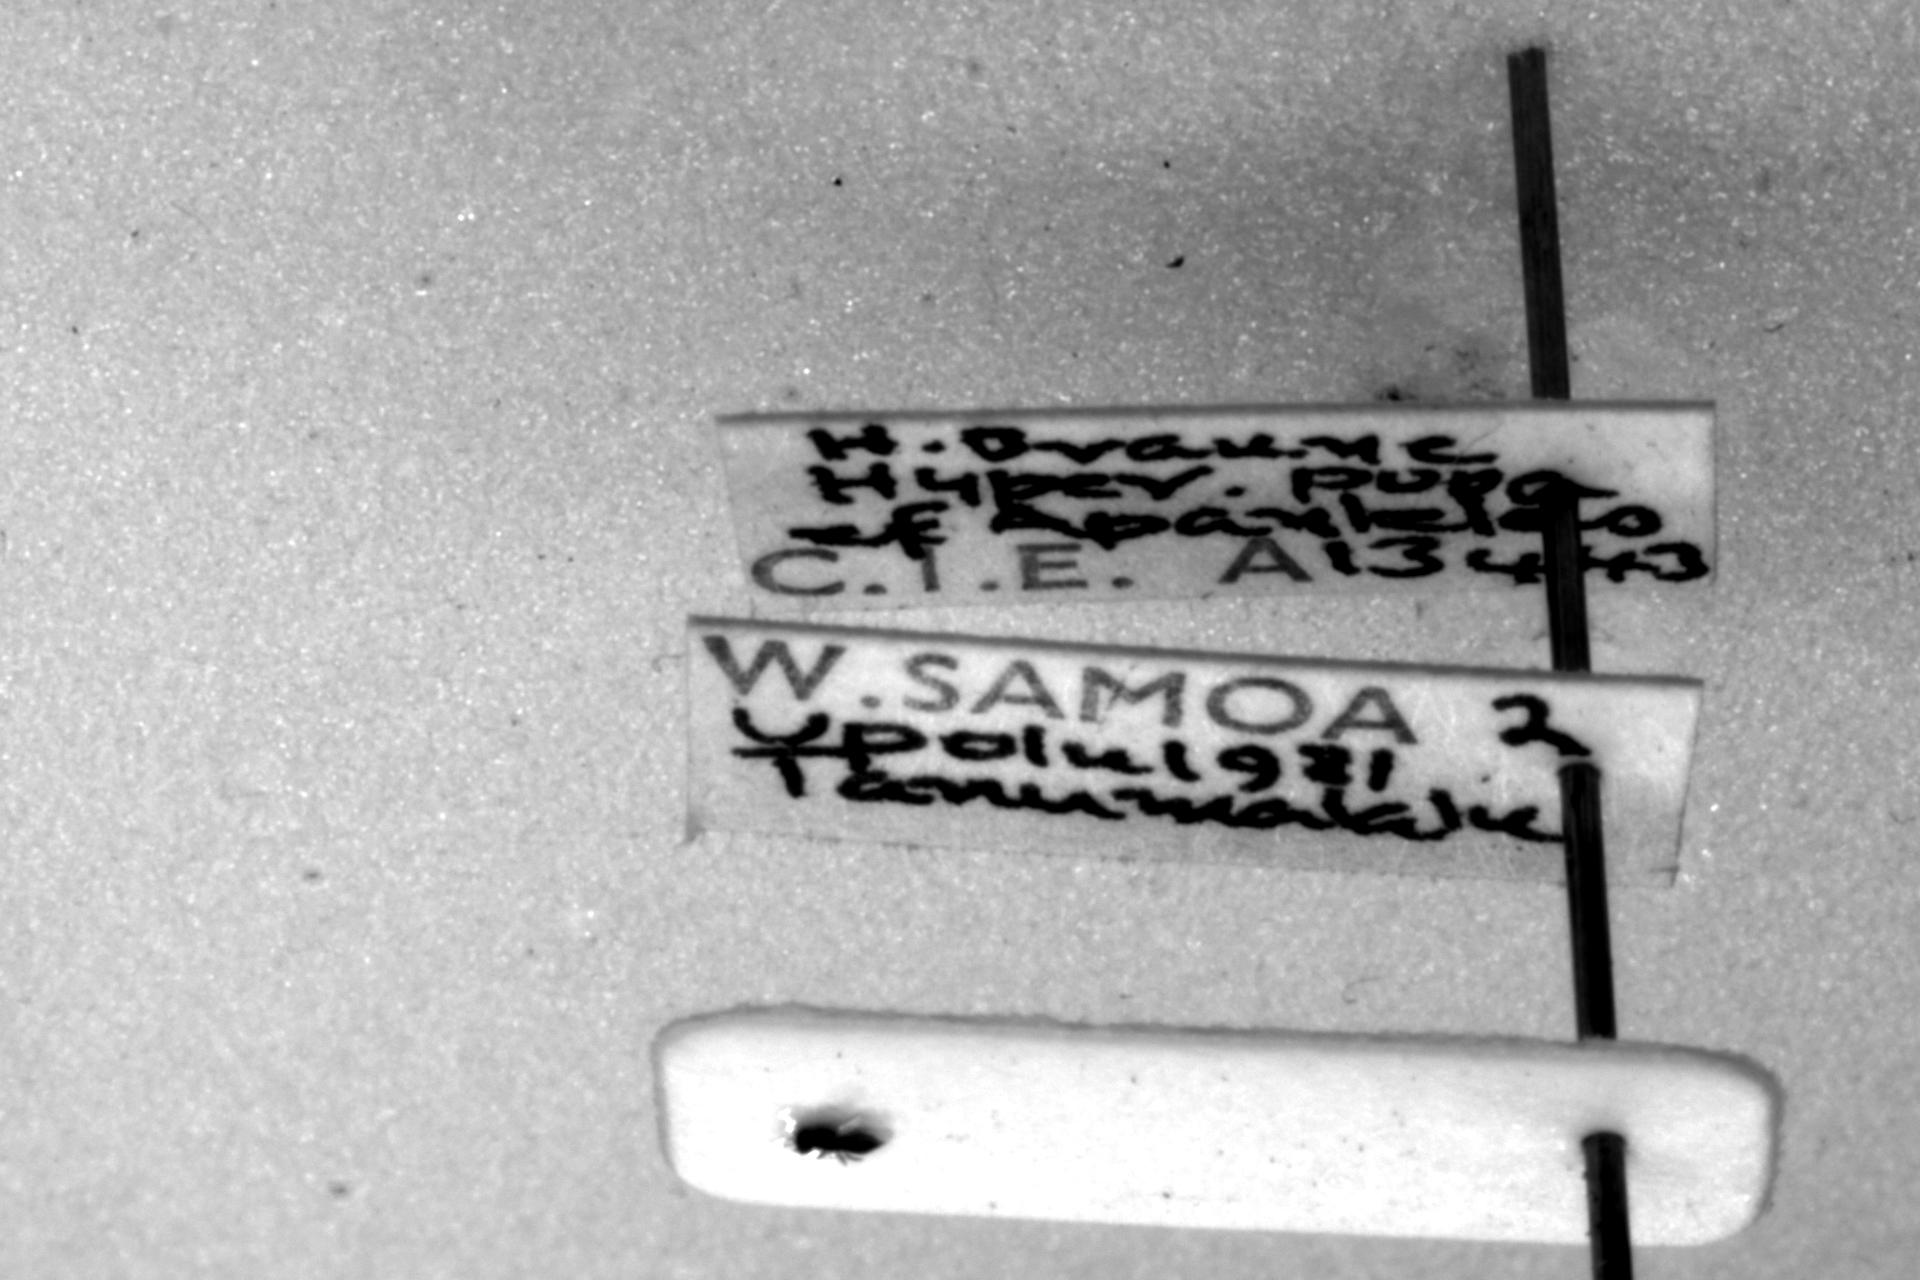 H. Braune
Hyper. pupa
of Apanteles
C.I.E. A13443
W. SAMOA 2
Upolu 1981